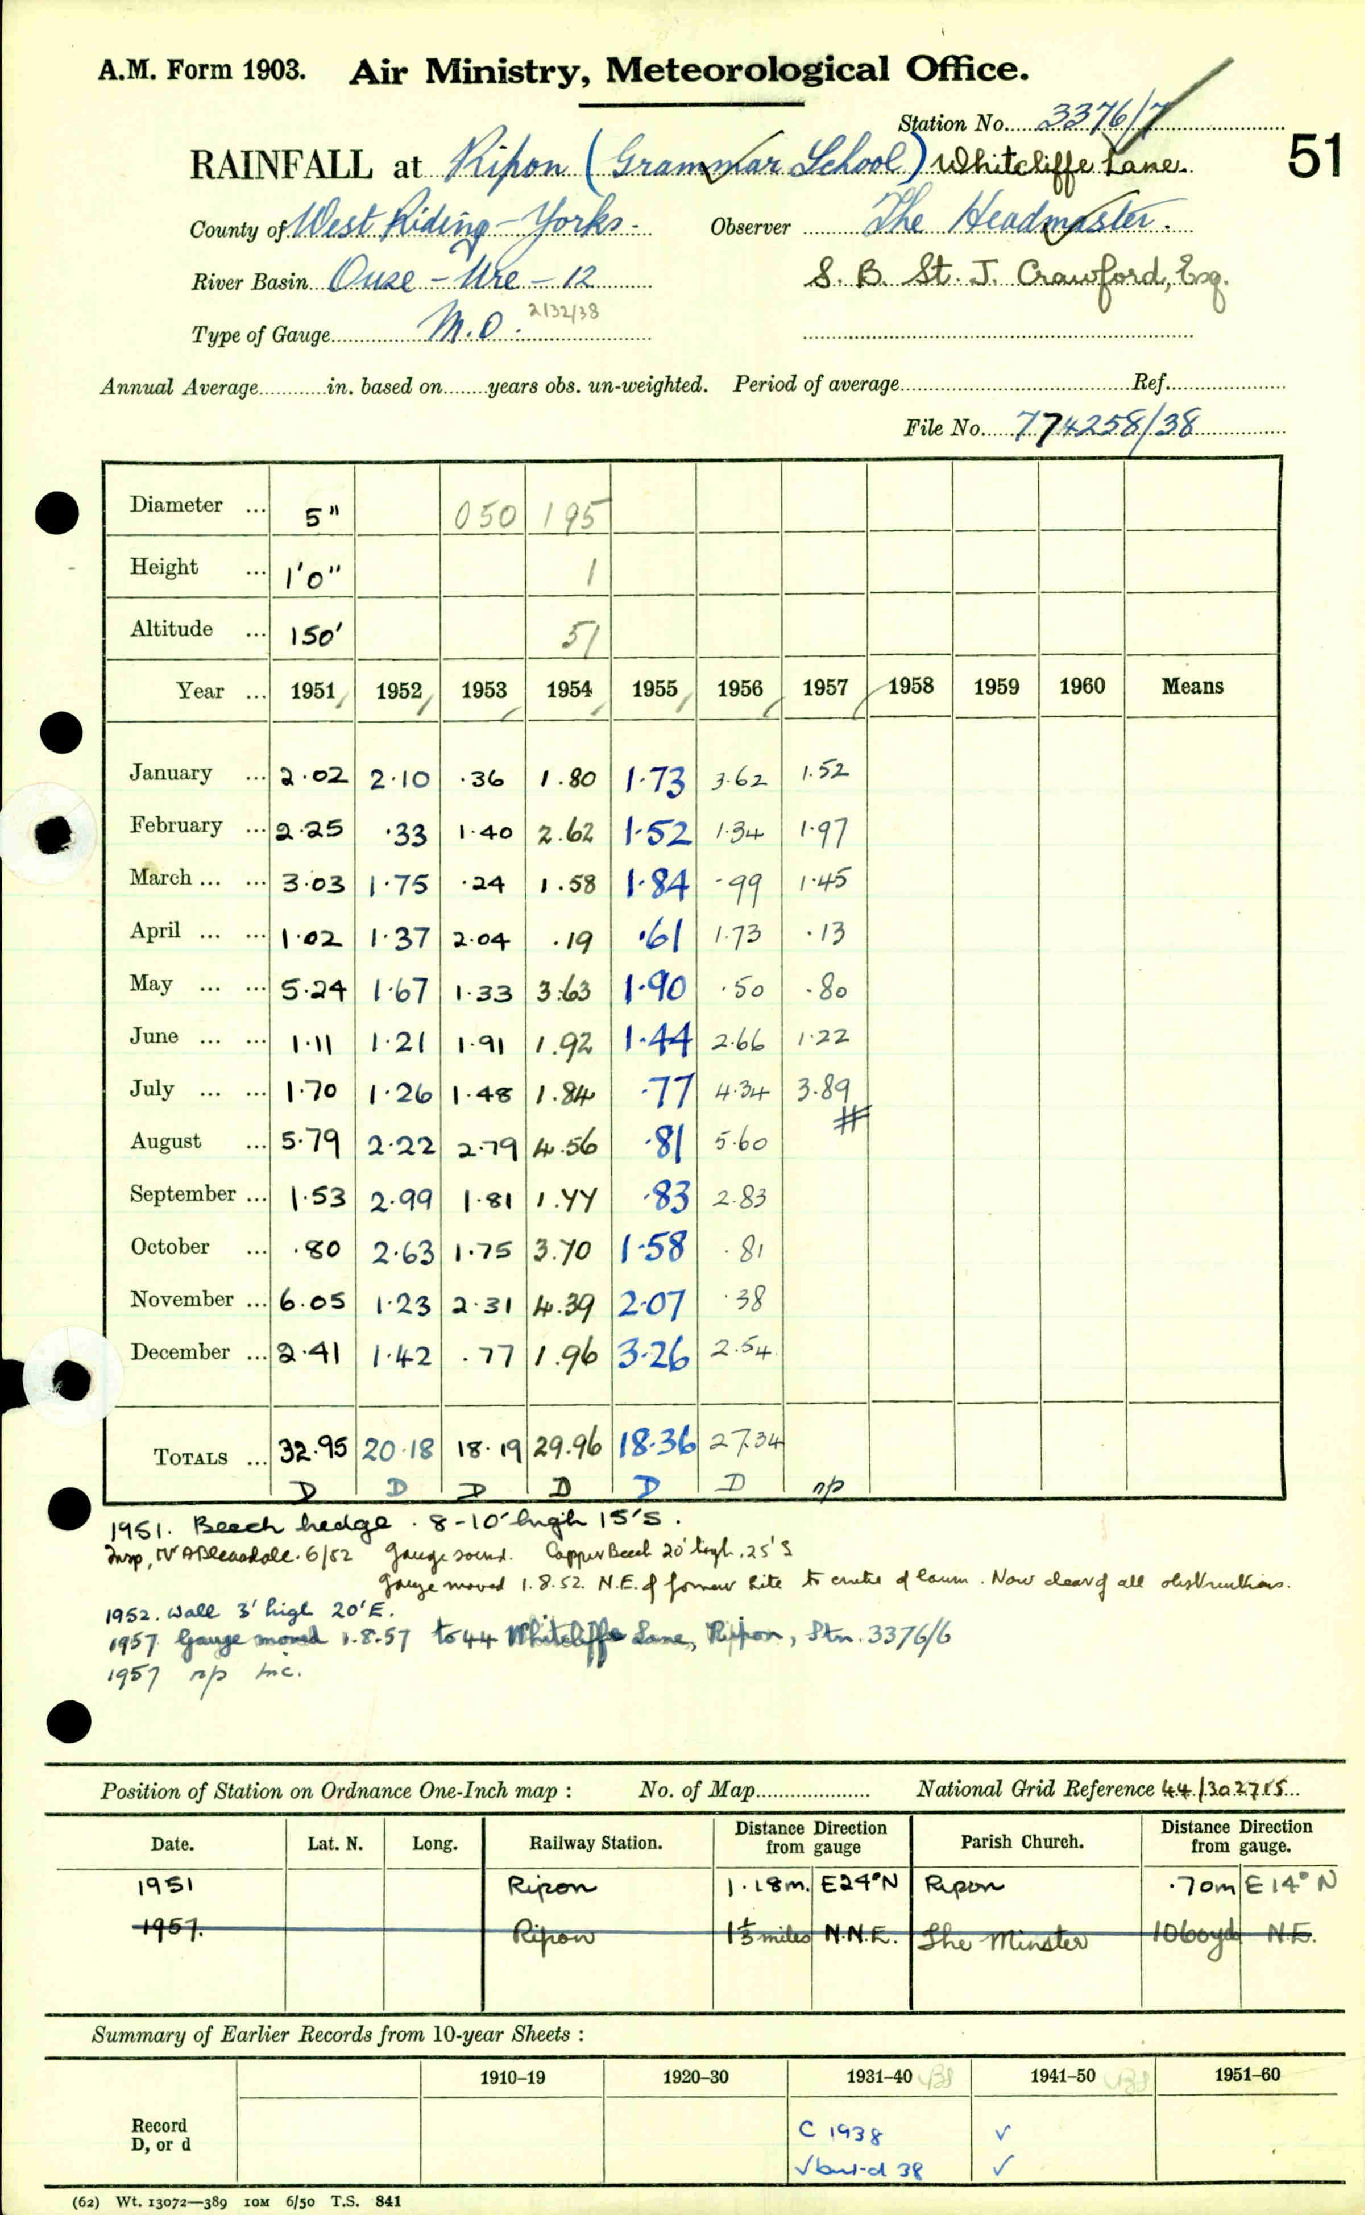 A.M. Form 1903. Air Ministry, Meteorological Office.
Station No. 3376/7
51
RAINFALL at Ripon (Grammar School) Whitcliffe Lane.
County of West Riding - Yorks. Observer The Headmaster.
River Basin Ouse - Ure - 12 S. B. St. J. Crawford, Esq.
Type of Gauge M.O. 2132/38
Annual Average in. based on years obs. un-weighted. Period of average Ref.
File No. 774258/38
Diameter ... 5" 050 195
Height ... 1'0" 1
Altitude ... 150' 51
Year ... 1951 1952 1953 1954 1955 1956 1957 1958 1959 1960 Means
January ... 2.02 2.10 .36 1.80 1.73 3.62 1.52
February ... 2.25 .33 1.40 2.62 1.52 1.34 1.97
March ... ... 3.03 1.75 .24 1.58 1.84 .99 1.45
April ... ... 1.02 1.37 2.04 .19 .61 1.73 .13
May ... ... 5.24 1.67 1.33 3.63 1.90 .50 .80
June ... ... 1.11 1.21 1.91 1.92 1.44 2.66 1.22
July ... ... 1.70 1.26 1.48 1.84 .77 4.34 3.89
#
August ... 5.79 2.22 2.79 4.56 .81 5.60
September ... 1.53 2.99 1.81 1.77 .83 2.83
October ... .80 2.63 1.75 3.70 1.58 .81
November ... 6.05 1.23 2.31 4.39 2.07 .38
December ... 2.41 1.42 .77 1.96 3.26 2.54
TOTALS ... 32.95 20.18 18.19 29.96 18.36 27.34
D D D D D D np
1951. Beech hedge. 8-10' high 15'S.
Insp, Mr A Bleasdale. 6/52 Gauge sound. Copper Beech 20' high, 25' S
Gauge moved 1.8.52. N.E. of former site to centre of lawn. Now clear of all obstructions.
1952. Wall 3' high 20'E.
1957 Gauge moved 1.8.57 to 44 Whitcliffe Lane, Ripon, Stn. 3376/6
1957 np inc.
Position of Station on Ordnance One-Inch map : No. of Map National Grid Reference 44/302715
Date. Lat. N. Long. Railway Station. Distance Direction from gauge Parish Church. Distance Direction from gauge.
1951 Ripon 1.18m. E24°N Ripon .70m E 14° N
1957. Ripon 1⅓ miles N.N.E. The Minster 1060yds N.E.
Summary of Earlier Records from 10-year Sheets :
1910–19 1920–30 1931–40 1941–50 1951–60
Record C 1938 ✓
D, or d ✓ but-d 38 ✓
(62) Wt. 13072—389 10M 6/50 T.S. 841